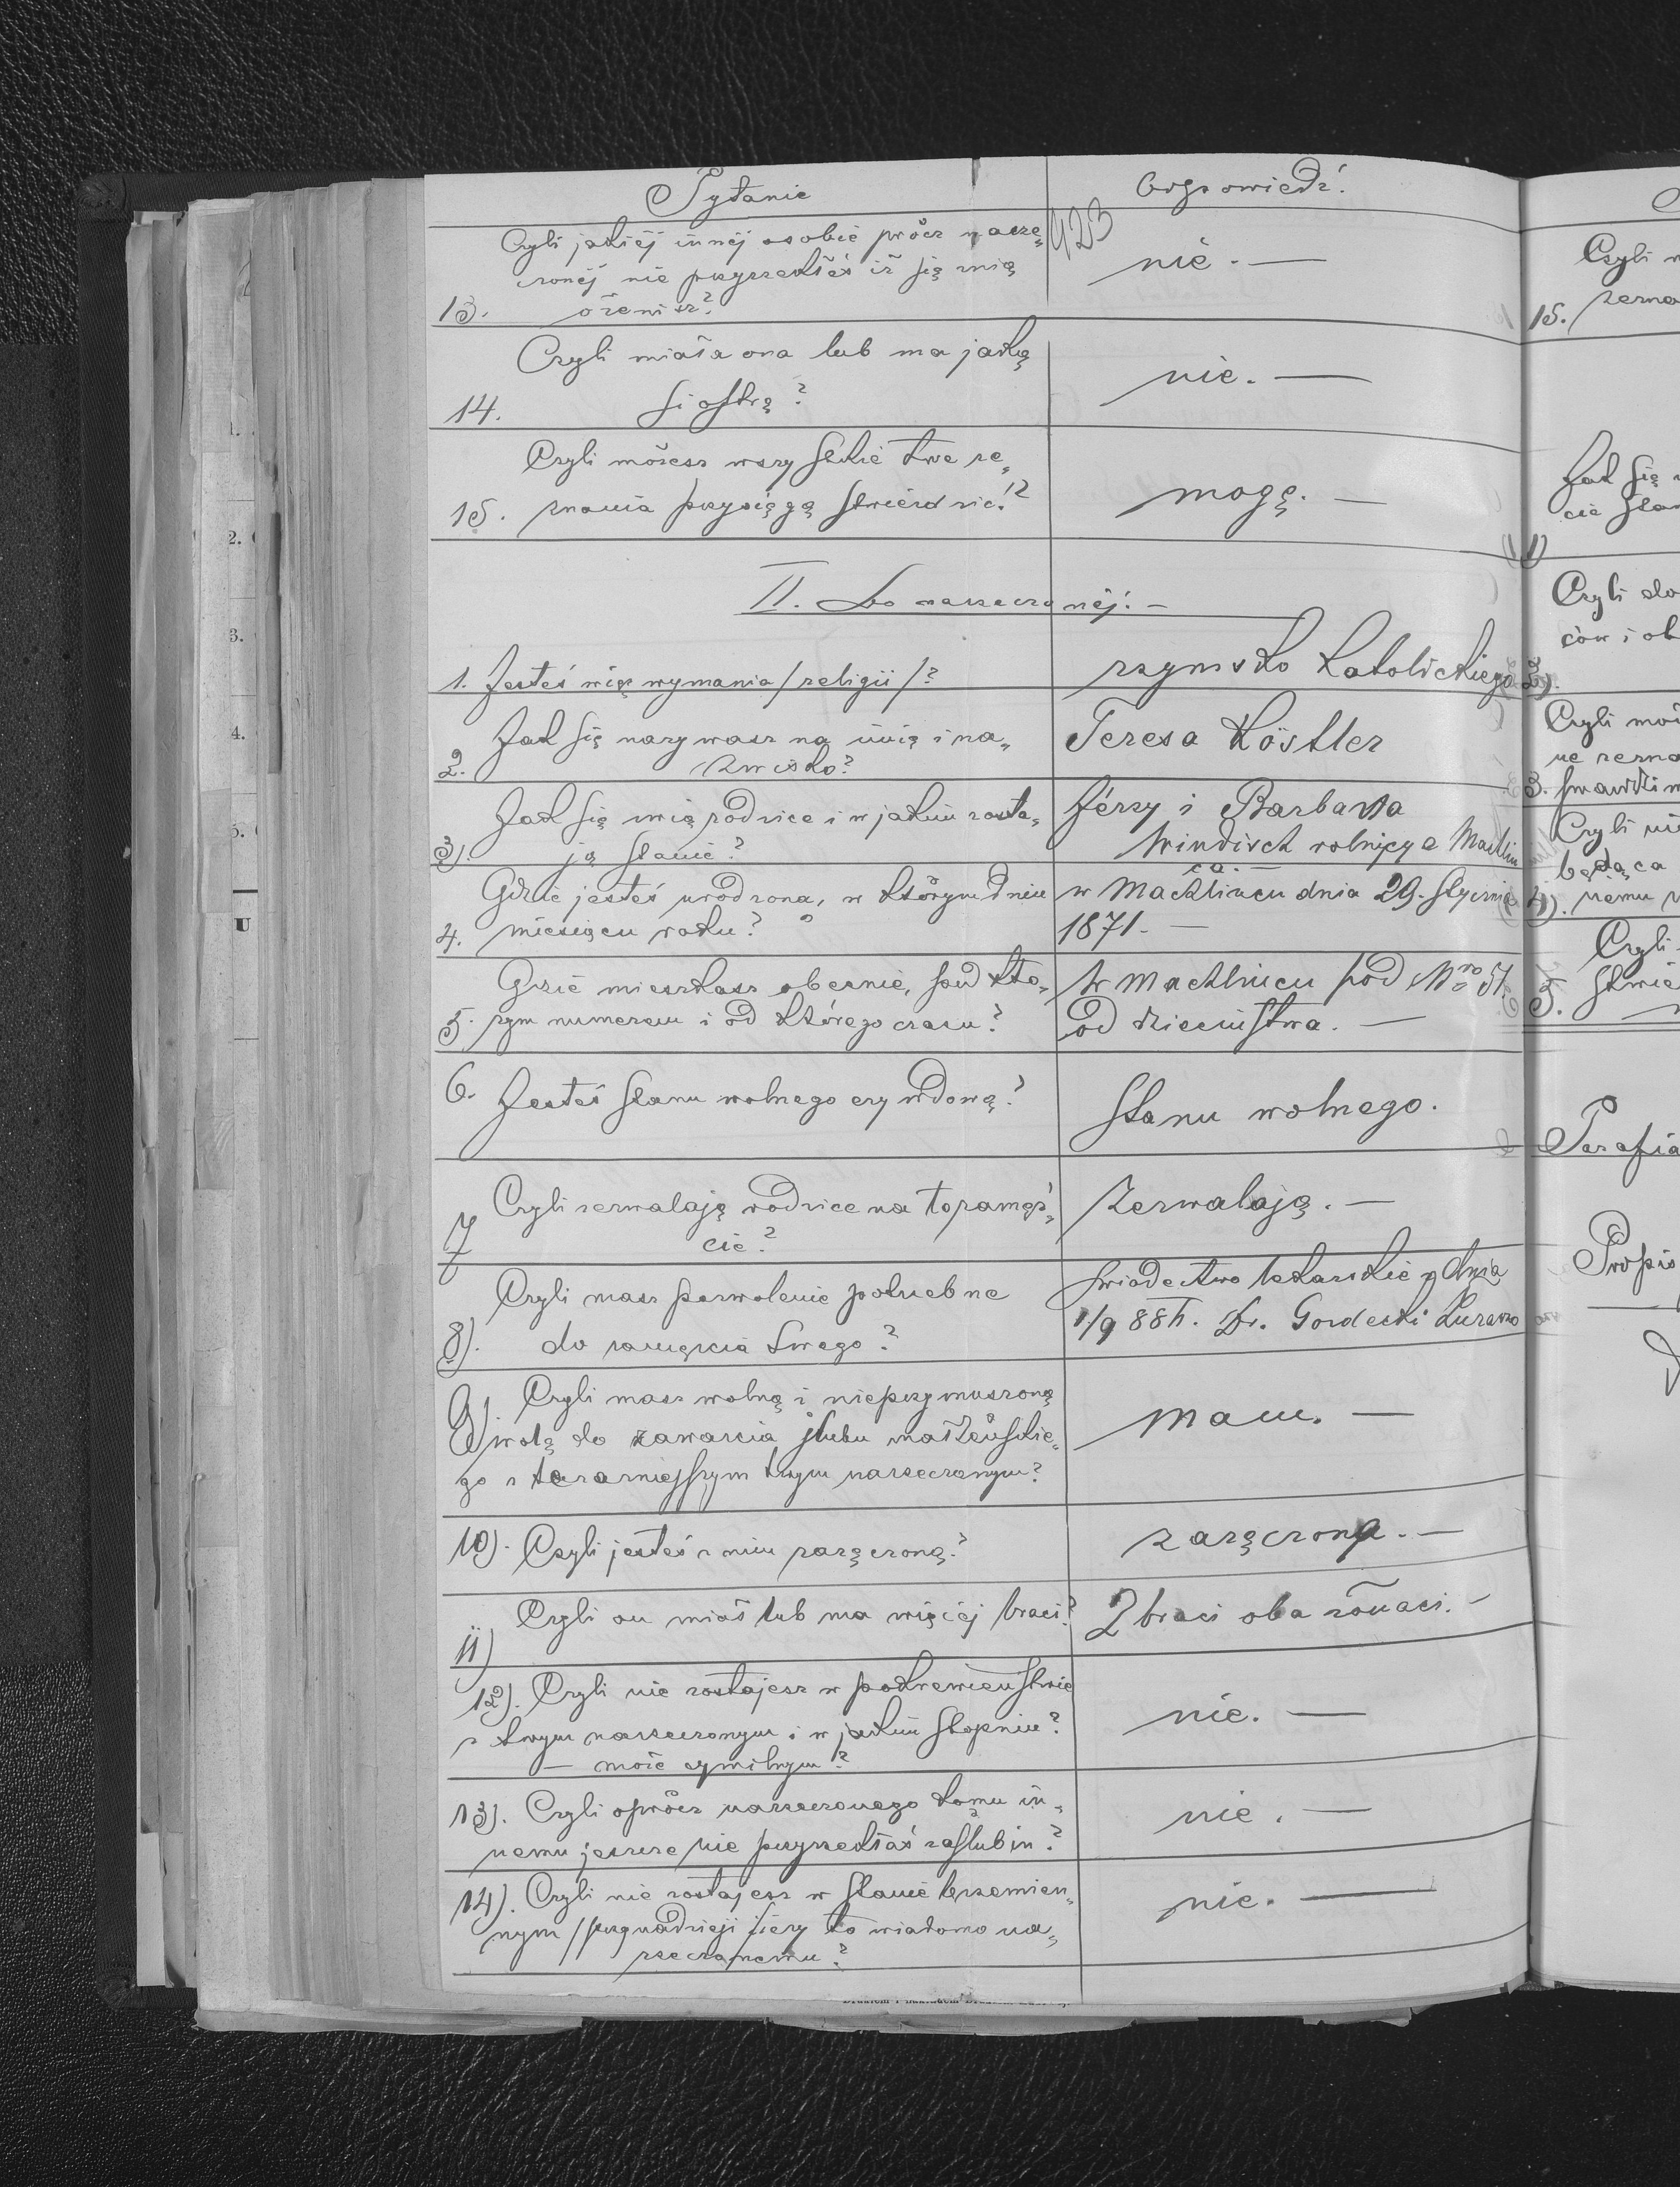 Pytanie
Odpowiedź.
423
Czyli jakiéj innéj osobie prócz narze„
czonéj nie przyrzekłeś iż się z nią
13. ożenisz?
nie. —
Czyli miała ona lub ma jaką
14. siostrę?
nie. —
Czyli możesz wszystkie twe ze„
15. znania przysięgą stwierdzić?
mogę. —
II. Do narzeczonéj. —
1. Jesteś więc wyznania /religii/?
rzymsko katolickiego
Jak się nazywasz na imię i na„
2. zwisko?
Teresa Köstler
Jak się zwią rodzice i w jakim zosta„
3). ją stanie?
Jérzy i Barbara
Windisch rolnicy z Machlin
ca. —
Gdzie jesteś urodzona, w którym dniu
4. miesiącu roku?
w Machlincu dnia 29. Stycznia
1871. —
Gdzie mieszkasz obecnie, pod któ„
5. rym numerem i od którego czasu?
w Machlincu pod Nro 51.
od dzieciństwa. —
6. Jesteś stanu wolnego czy wdową?
Stanu wolnego.
Czyli zezwalają rodzice na to zamęź„
7 cie?
Zezwalają. —
Czyli masz pozwolenie potrzebne
8). do zamęzcia twego?
Swiadectwo lekarskie z dnia
1/9 88 Dr. Gordecki Zurawno
9) Czyli masz wolną i nieprzymuszoną
wolę do zawarcia ślubu małżeńskie„
go z teraźniejszym twym narzeczonym?
mam. —
10). Czyli jesteś z nim zaręczoną?
zaręczona. —
Czyli on miał lub ma więcéj braci?
11)
2 braci oba żonaci. —
12). Czyli nie zostajesz w pokrewieństwie
z twym narzeczonym i w jakim stopniu?
— może cywilnym?
nie. —
13). Czyli oprócz narzeczonego komu in„
nemu jeszcze nie przyrzekłaś zaślubin?
nie. —
14). Czyli nie zostajesz w stanie brzemien„
nym /przy nadzieji/ i czy to wiadomo na„
rzeczonemu?
nie. —
Czyli
15.
Jak się
cie
1)
Czyli
2).
Czyli
3.
Czyli
będąca
4).
Czyli
5.
Parafia
Podpis
1.
2.
3.
4.
5.
U